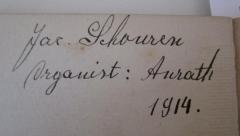 Jac. Schouren
Organist: Anrath
1914.